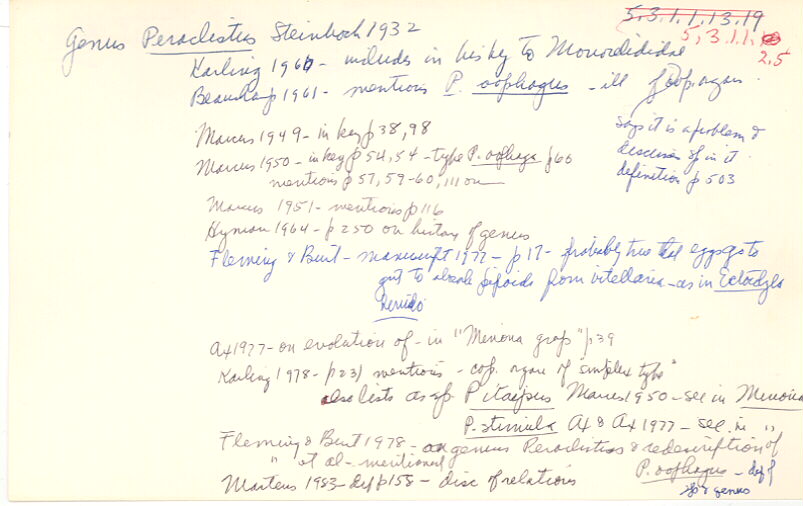 5,3.1.1.13.19
5,3.1.1.
2.5
Genus Peraclistus Steinböck 1932
Karling 1966 - includes in his key to Monocelididae
Beauchamp 1961 - mentions P. oophagus - ill of cop. organ
says it is a problem &
discusses sp in it
definition p 503
Marcus 1949 - in key p 38, 98
Marcus 1950 - in key p 54, 54 - type P. oophaga p 60
mentions p 57, 59-60, 111 on
Marcus 1951 - mentions p 116
Hyman 1964 - p 250 on history of genus
Fleming & Burt - manuscript 1977 - p 17 - probably true that eggs go to
gut to absorb lipoids from vitellaria - as in
Ax 1977 - on evolution of - in "Minona group" p 39
Karling 1978 - p 231 mentions - cop. organ of "simplex type"
also lists as sp P. itaipus Marcus 1950 - see in Minona
P. stimula Ax & Ax 1977 - see in "
Fleming & Burt 1978 - on genus Peraclistus & redescription of
P. oophagus - def of
sp & genus
" et al - mentioned
Martens 1983 - def p 158 - disc of relations